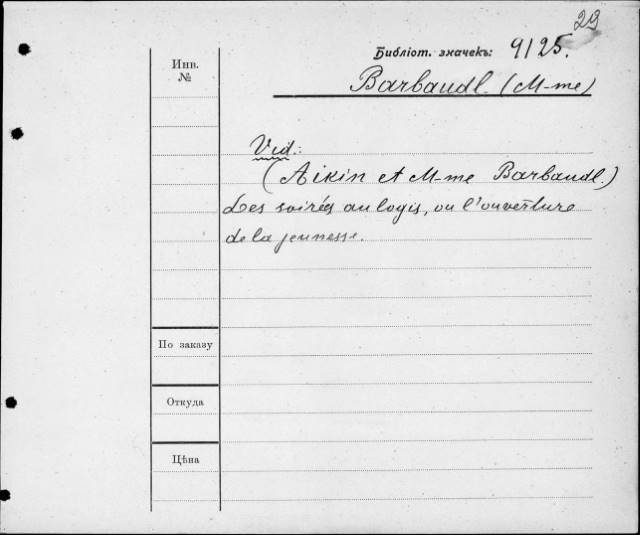 29
Библіот. значекъ: 9125.
Инв.
№
Barbaudl. (M-me)
Vid.:
(Aikin et M-me Barbaudl.)
Les soirées au logis, ou l'ouverture
de la jeunesse.
По заказу
Откуда
Цѣна